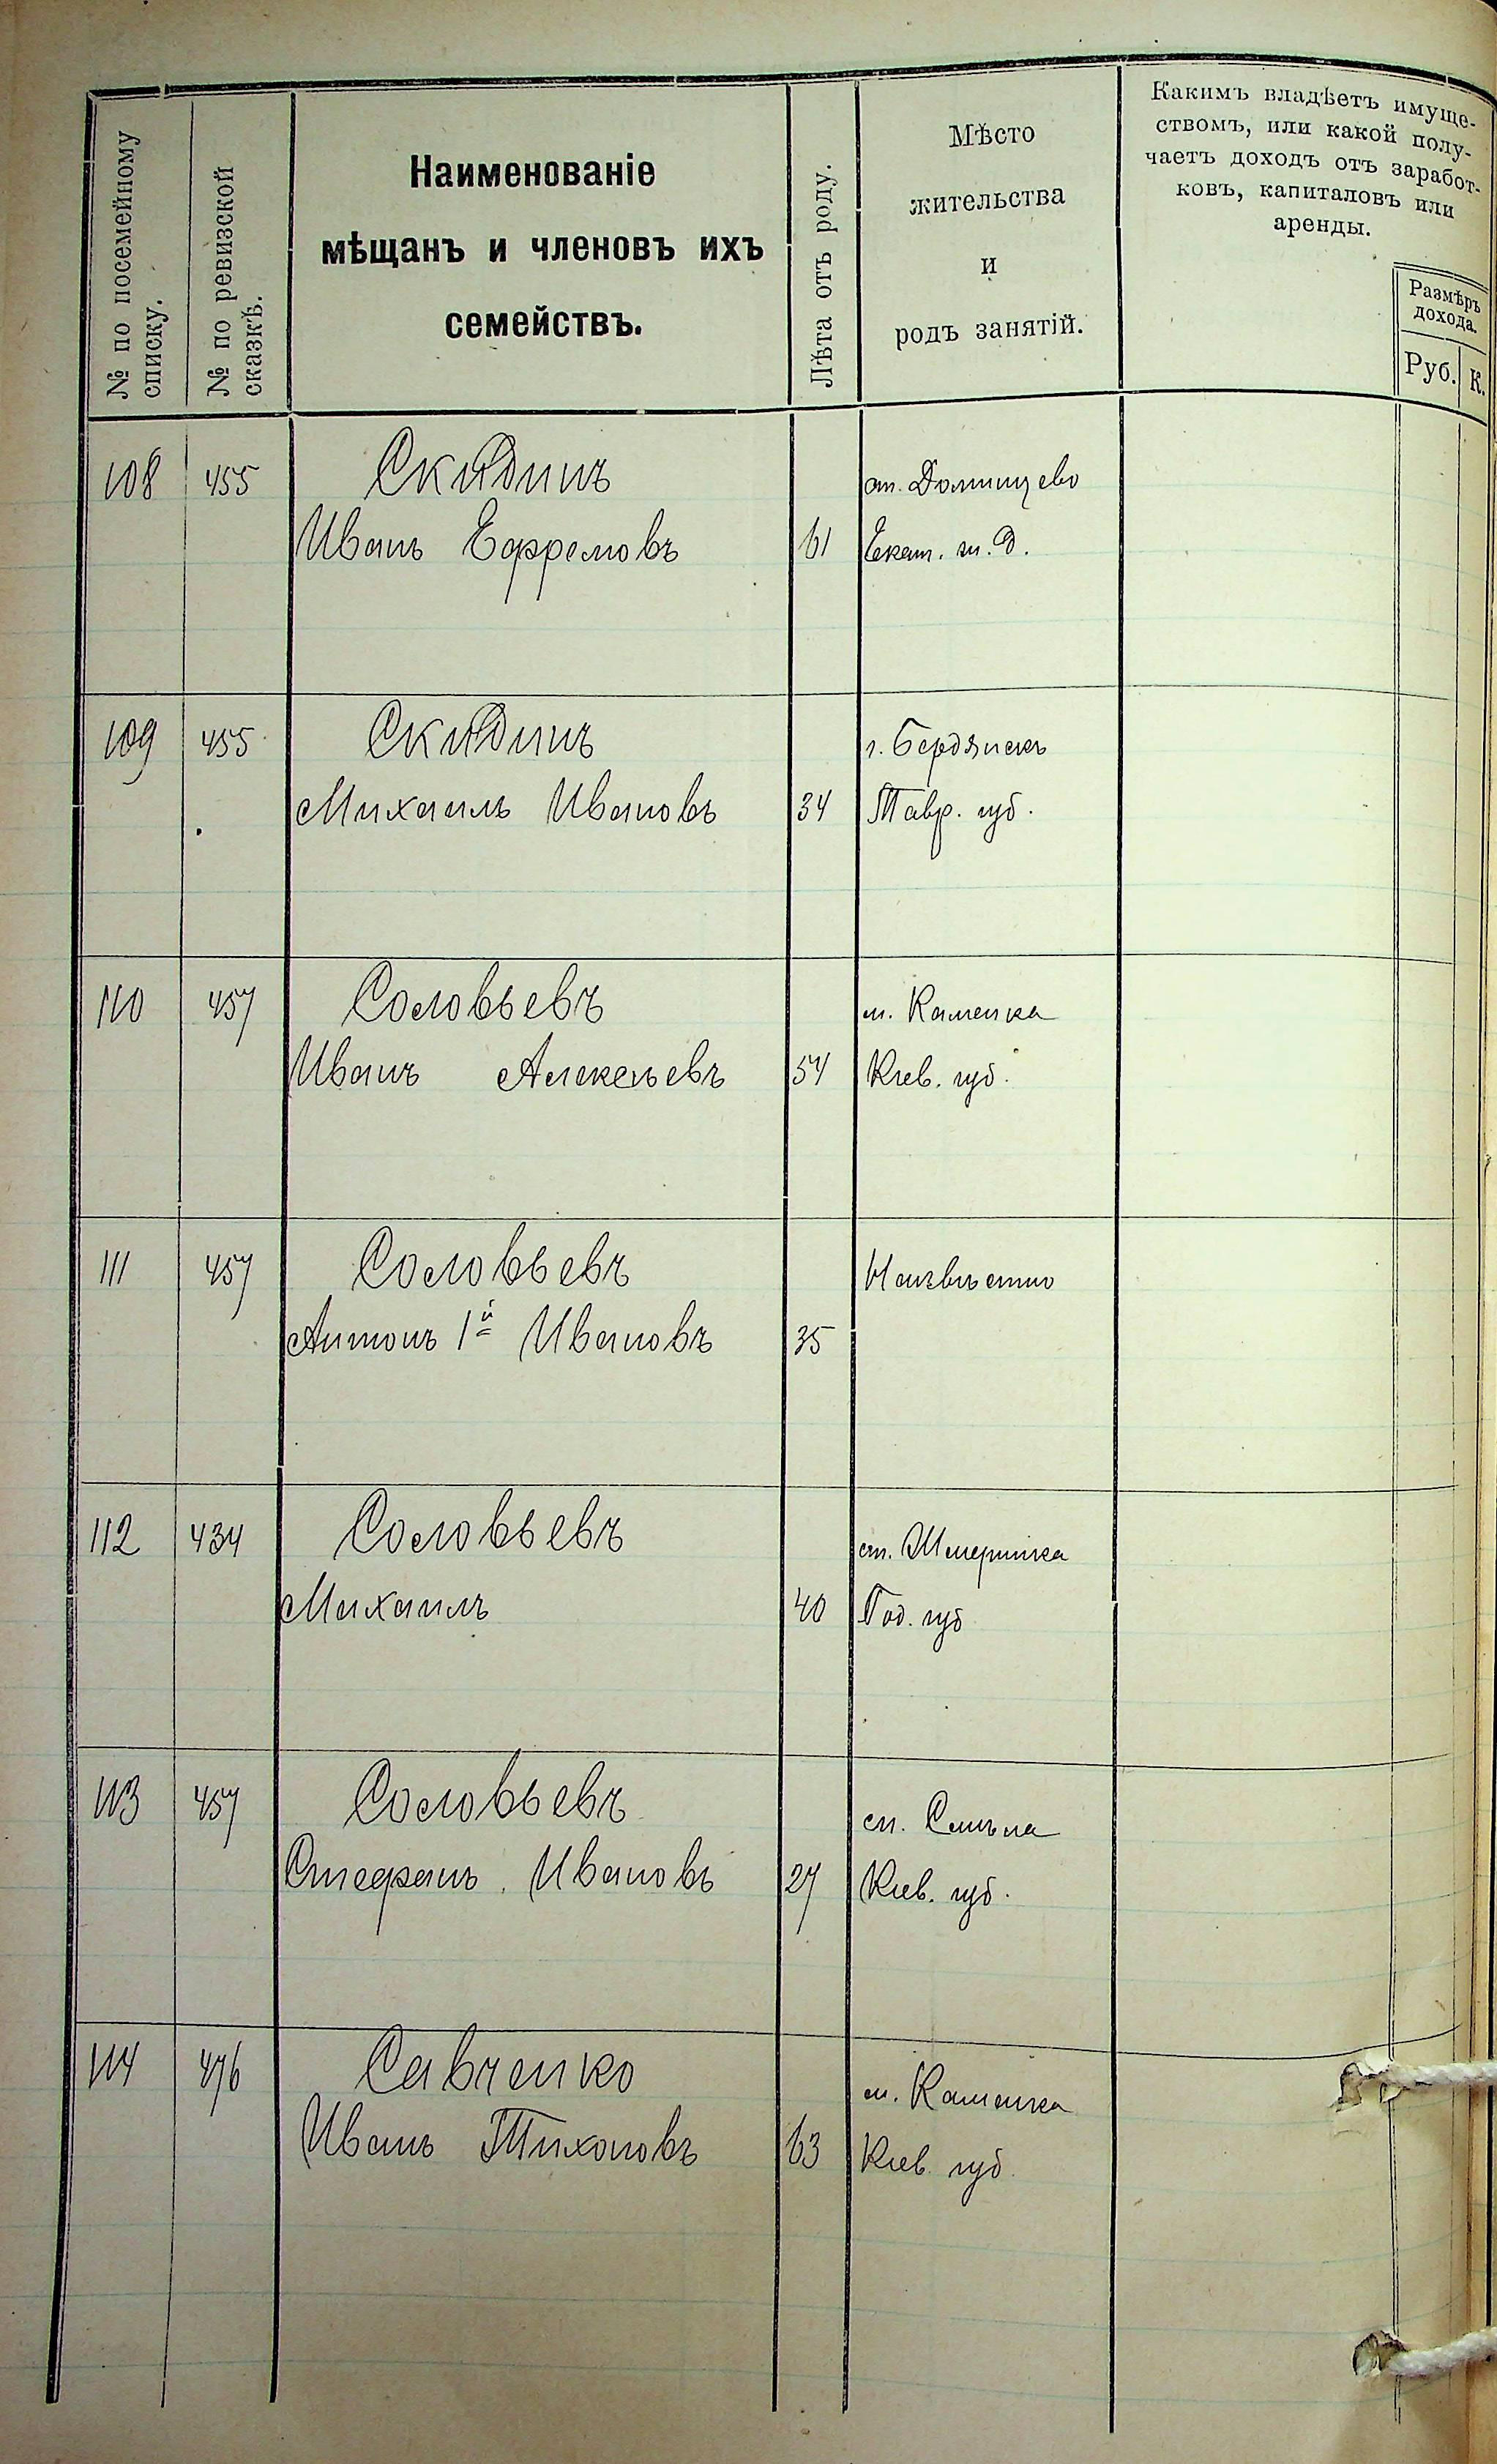 № по посемейному
списку.
№ по ревизской
сказкѣ.
Наименованіе
мѣщанъ и членовъ ихъ
семействъ.
Лѣта отъ роду.
Мѣсто
жительства
и
родъ занятій.
Какимъ владѣетъ имуще-
ствомъ, или какой полу-
чаетъ доходъ отъ заработ-
ковъ, капиталовъ или
аренды.
Размѣръ
дохода.
Руб. К.
108 455 Скидинъ ст.
Иванъ Ефремовъ 61 Екат. ж. д.
109 455 Скидинъ г. Бердянскъ
Михаилъ Ивановъ 34 Тавр. губ.
110 457 Соловьевъ м. Каменка
Иванъ Алексѣевъ 54 Кіев. губ.
111 457 Соловьевъ Неизвѣстно
Антонъ 1й Ивановъ 35
112 434 Соловьевъ ст. Жмеринка
Михаилъ 40 Под. губ
113 457 Соловьевъ ст. Смѣла
Стефанъ Ивановъ 27 Кіев. губ.
114 476 Савченко м. Каменка
Иванъ Тихоновъ 63 Кіев. губ.